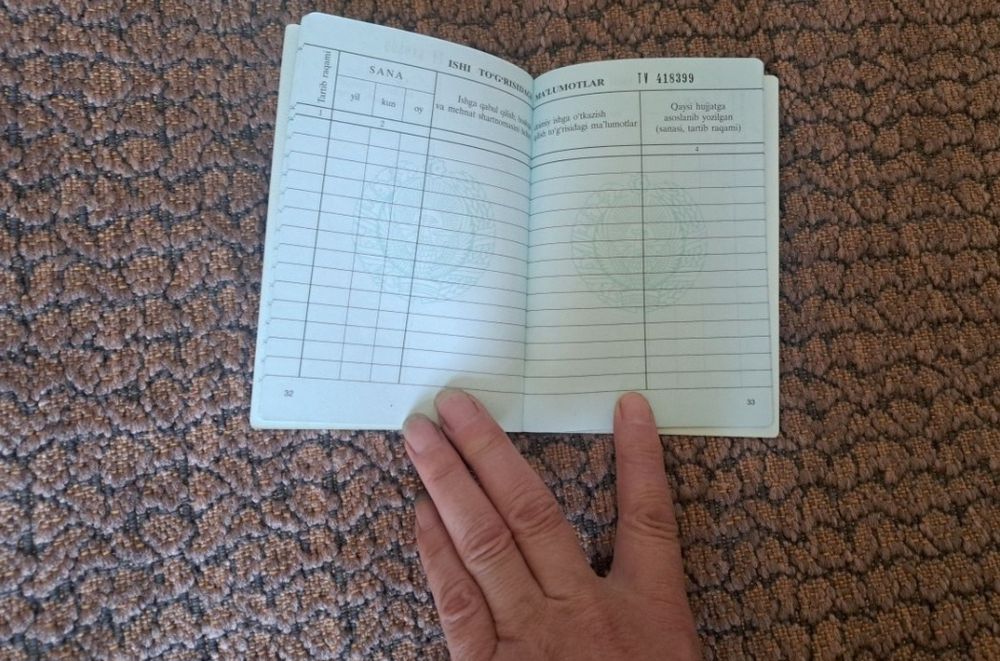 ISHI TO'G'RISIDAGI MA'LUMOTLAR
TV 418399
Tartib raqami
SANA
yil kun oy
Ishga qabul qilish,
va mehnat shartnomasini
ishga o'tkazish
to'g'risidagi ma'lumotlar
Qaysi hujjatga
asoslanib yozilgan
(sanasi, tartib raqami)
1 2 4
32
33